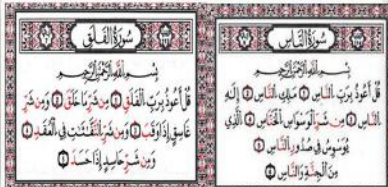 سُورَةُ النَّاسِ
بِسْمِ اللَّهِ الرَّحْمَٰنِ الرَّحِيمِ
قُلْ أَعُوذُ بِرَبِّ النَّاسِ ۝ مَلِكِ النَّاسِ ۝ إِلَٰهِ
النَّاسِ ۝ مِن شَرِّ الْوَسْوَاسِ الْخَنَّاسِ ۝ الَّذِي
يُوَسْوِسُ فِي صُدُورِ النَّاسِ ۝
مِنَ الْجِنَّةِ وَالنَّاسِ ۝
سُورَةُ الْفَلَقِ
بِسْمِ اللَّهِ الرَّحْمَٰنِ الرَّحِيمِ
قُلْ أَعُوذُ بِرَبِّ الْفَلَقِ ۝ مِن شَرِّ مَا خَلَقَ ۝ وَمِن شَرِّ
غَاسِقٍ إِذَا وَقَبَ ۝ وَمِن شَرِّ النَّفَّاثَاتِ فِي الْعُقَدِ ۝
وَمِن شَرِّ حَاسِدٍ إِذَا حَسَدَ ۝